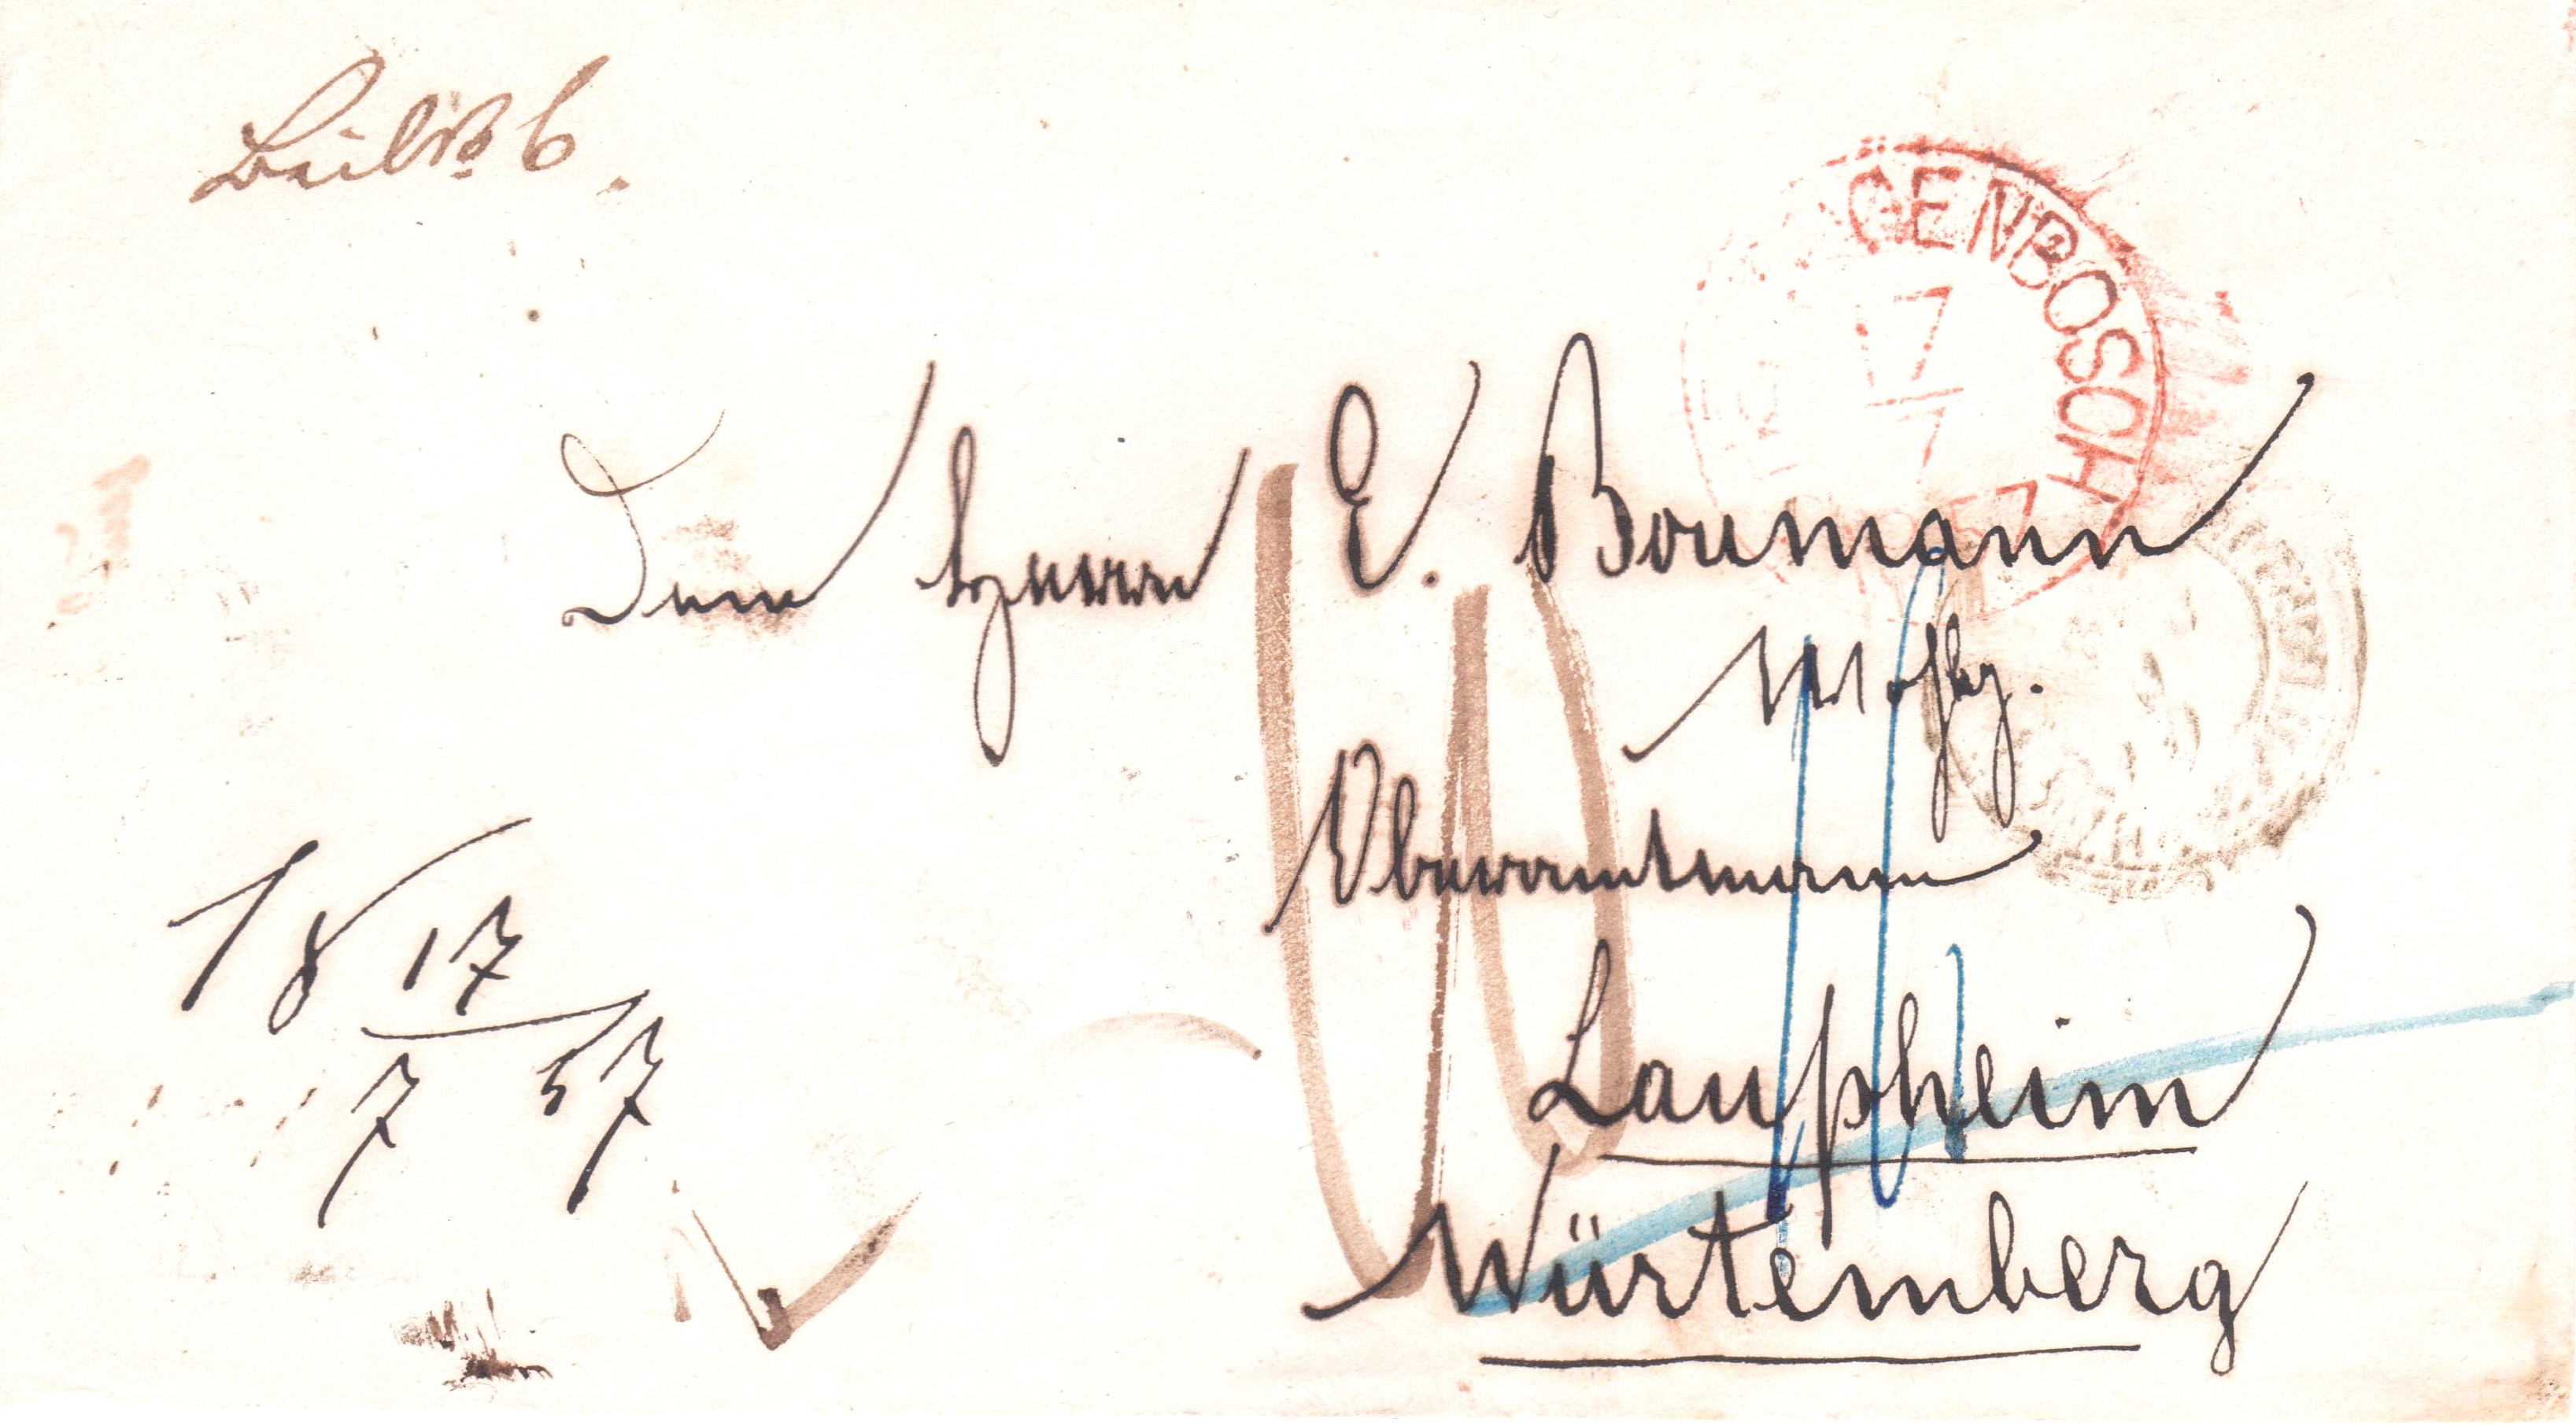 Beil. No. 6.
GENBOSCH
17
7
Dem Herrn E. Baumann
Oberamtmann
Laupheim
Würtemberg
18 17/7 57